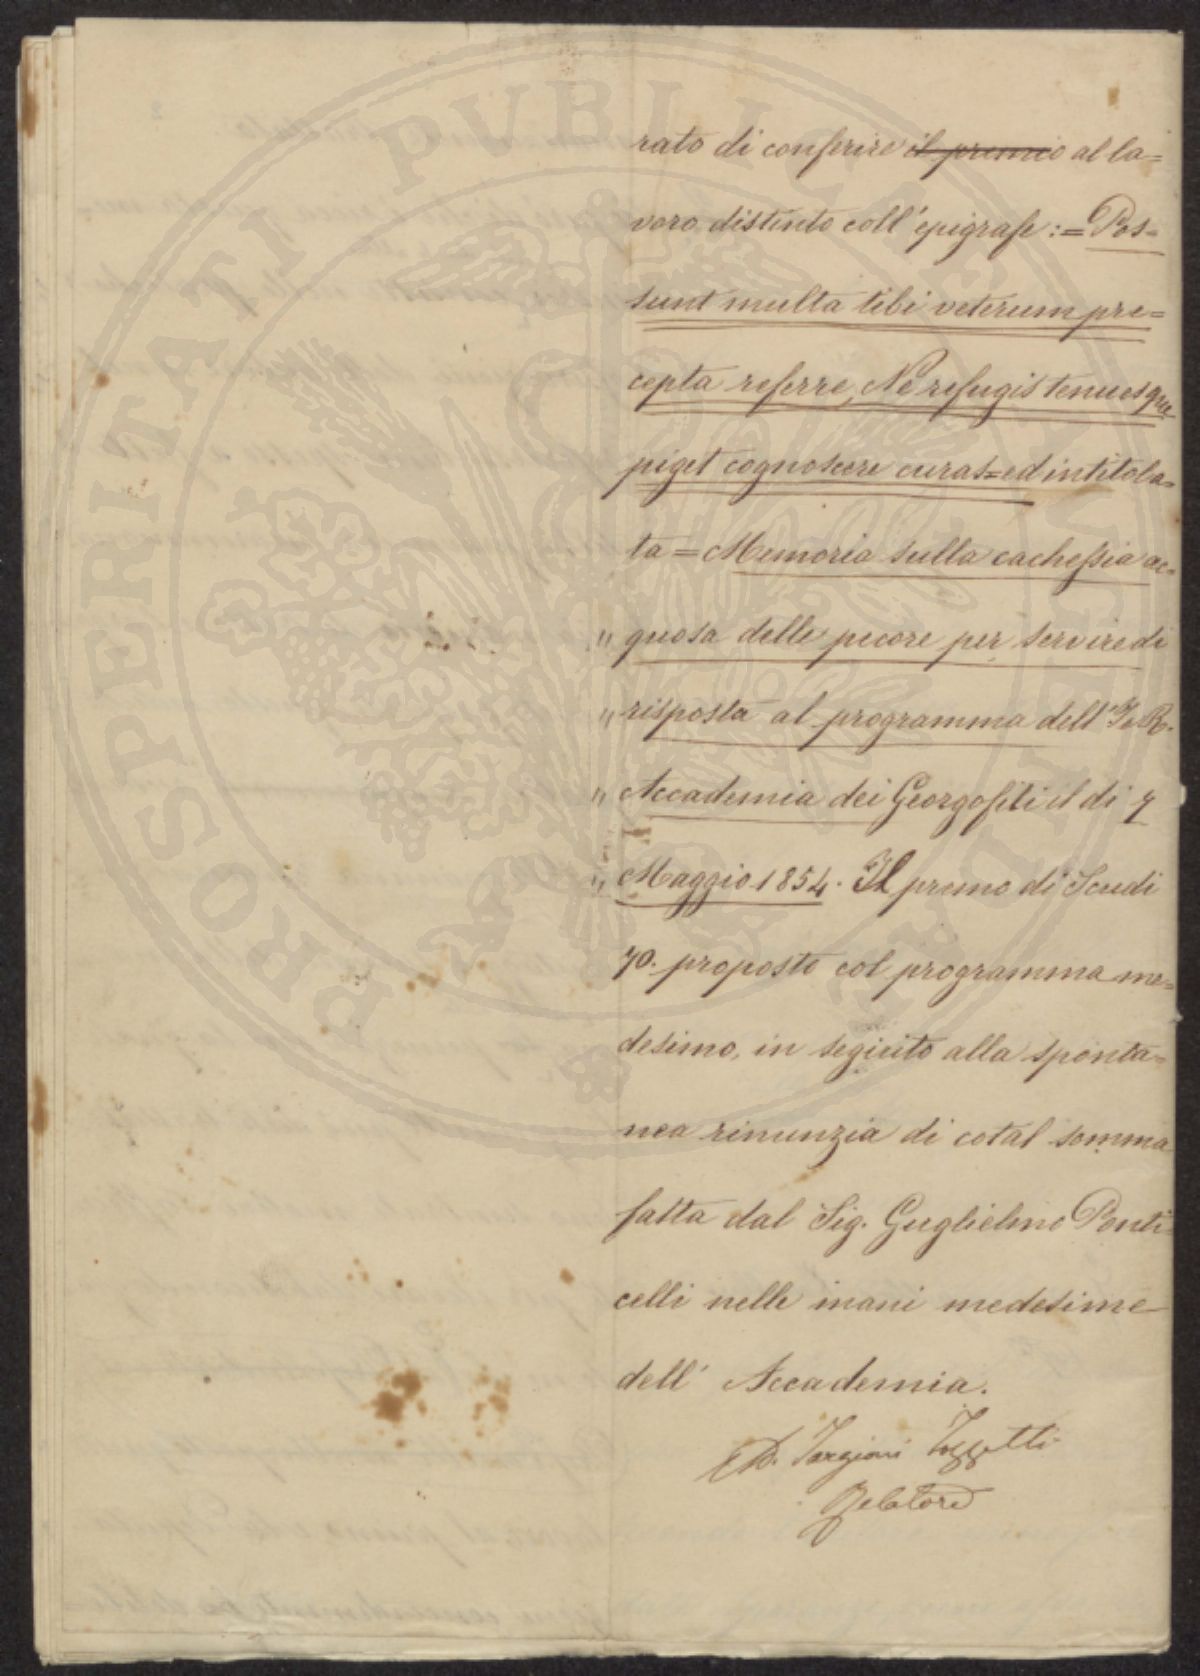 rato di conferire il premio al la=
voro distinto coll' epigrafe := Pos=
sunt multa tibi veterum pre=
cepta referre, Ne refugis tenuesque
piget cognoscere curas = ed intitola=
ta = Memoria sulla cachessia ac=
" quosa delle pecore per servire di
" risposta al programma dell' I. e R.
" Accademia dei Georgofili il di 7
" Maggio 1854. Il premio di Scudi
70. proposto col programma me=
desimo, in seguito alla sponta=
nea rinunzia di cotal somma
fatta dal Sig. Guglielmo Ponti
celli nelle mani medesime
dell' Accademia.
Ad. Targioni Tozzetti
Relatore
PROSPERITATI PUBLICAE AUGENDAE